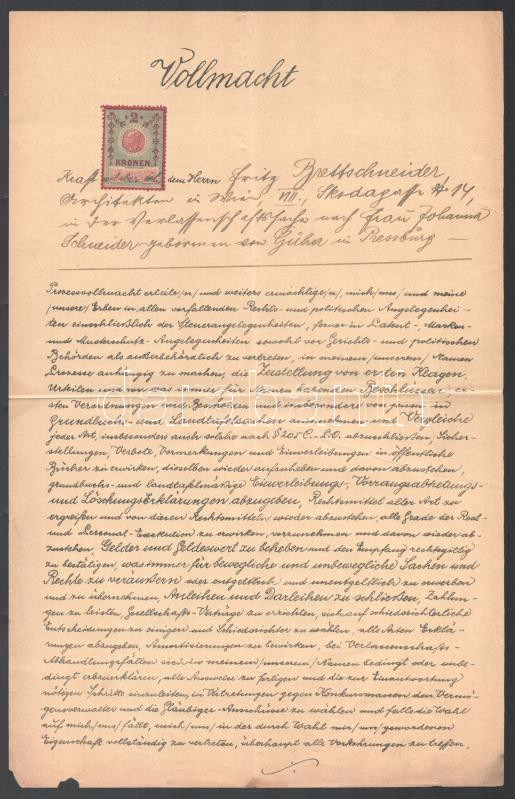 Vollmacht
2
KRONEN
Kraft welcher ich dem Herrn Fritz Brettschneider,
Architekten in Wien, VIII., Skodagasse 14,
in der Verlassenschaftssache nach Frau Johanna
Schneider geborenen von in Pressburg
Prozessvollmacht erteile/n/ und weiters ermächtige/n/, mich/uns/ und meine
/unsere/ Erben in allen vorfallenden Rechts- und politischen Angelegenhei-
ten einschließlich der Steuerangelegenheiten, ferner in Patent-, Marken-
und Musterschutz-Angelegenheiten sowohl vor Gerichts- und politischen
Behörden als außerbehördlich zu vertreten, in meinem/unserem/ Namen
Prozesse anhängig zu machen, die Zustellung von ersten Klagen,
Urteilen und von was immer für Namen habenden Beschlüssen er-
sten Verordnungen und Bescheiden, insbesondere von jenen in
Grundbuchs- und Landtafelsachen anzunehmen und Vergleiche
jeder Art, insbesondere auch solche nach § 205 C.-P.O. abzuschließen, Sicher-
stellungen, Verbote, Vormerkungen und Einverleibungen in öffentliche
Bücher zu erwirken, dieselben wieder aufzuheben und davon abzustehen,
grundbuchs- und landtafelmäßige Einverleibungs-, Vorrangsabtretungs-
und Löschungserklärungen abzugeben, Rechtsmittel aller Art zu
ergreifen und von diesen Rechtsmitteln wieder abzustehen, alle Grade der Real-
und Personal-Exekution zu erwirken, vorzunehmen und davon wieder ab-
zustehen, Gelder und Geldeswert zu beheben und den Empfang rechtsgiltig
zu bestätigen, was immer für bewegliche und unbewegliche Sachen und
Rechte zu veräussern oder entgeltlich und unentgeltlich zu erwerben
und zu übernehmen, Anleihen und Darleihen zu schließen, Zahlun-
gen zu leisten, Gesellschafts-Verträge zu errichten, sich auf schiedsrichterliche
Entscheidungen zu einigen und Schiedsrichter zu wählen, alle Arten Erklä-
rungen abzugeben, Amortisierungen zu bewirken, bei Verlassenschafts-
Abhandlungsfällen sich in meinem/unserem/Namen bedingt oder unbe-
dingt abzuerklären, alle Ausweise zu fertigen und die zur Einantwortung
nötigen Schritte einzuleiten, in Vertretungen gegen Konkursmassen den Vermö-
gensverwalter und die Gläubiger-Ausschüsse zu wählen und falls die Wahl
auf mich/uns/fällt, mich/uns/in der durch Wahl mir/uns/gewordenen
Eigenschaft vollständig zu vertreten, überhaupt alle Vorkehrungen zu treffen,